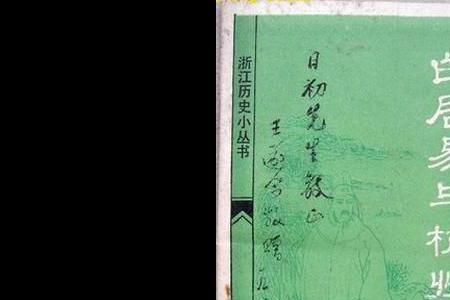 白居易与杭
日初先生
王
敬赠
浙江历史小丛书